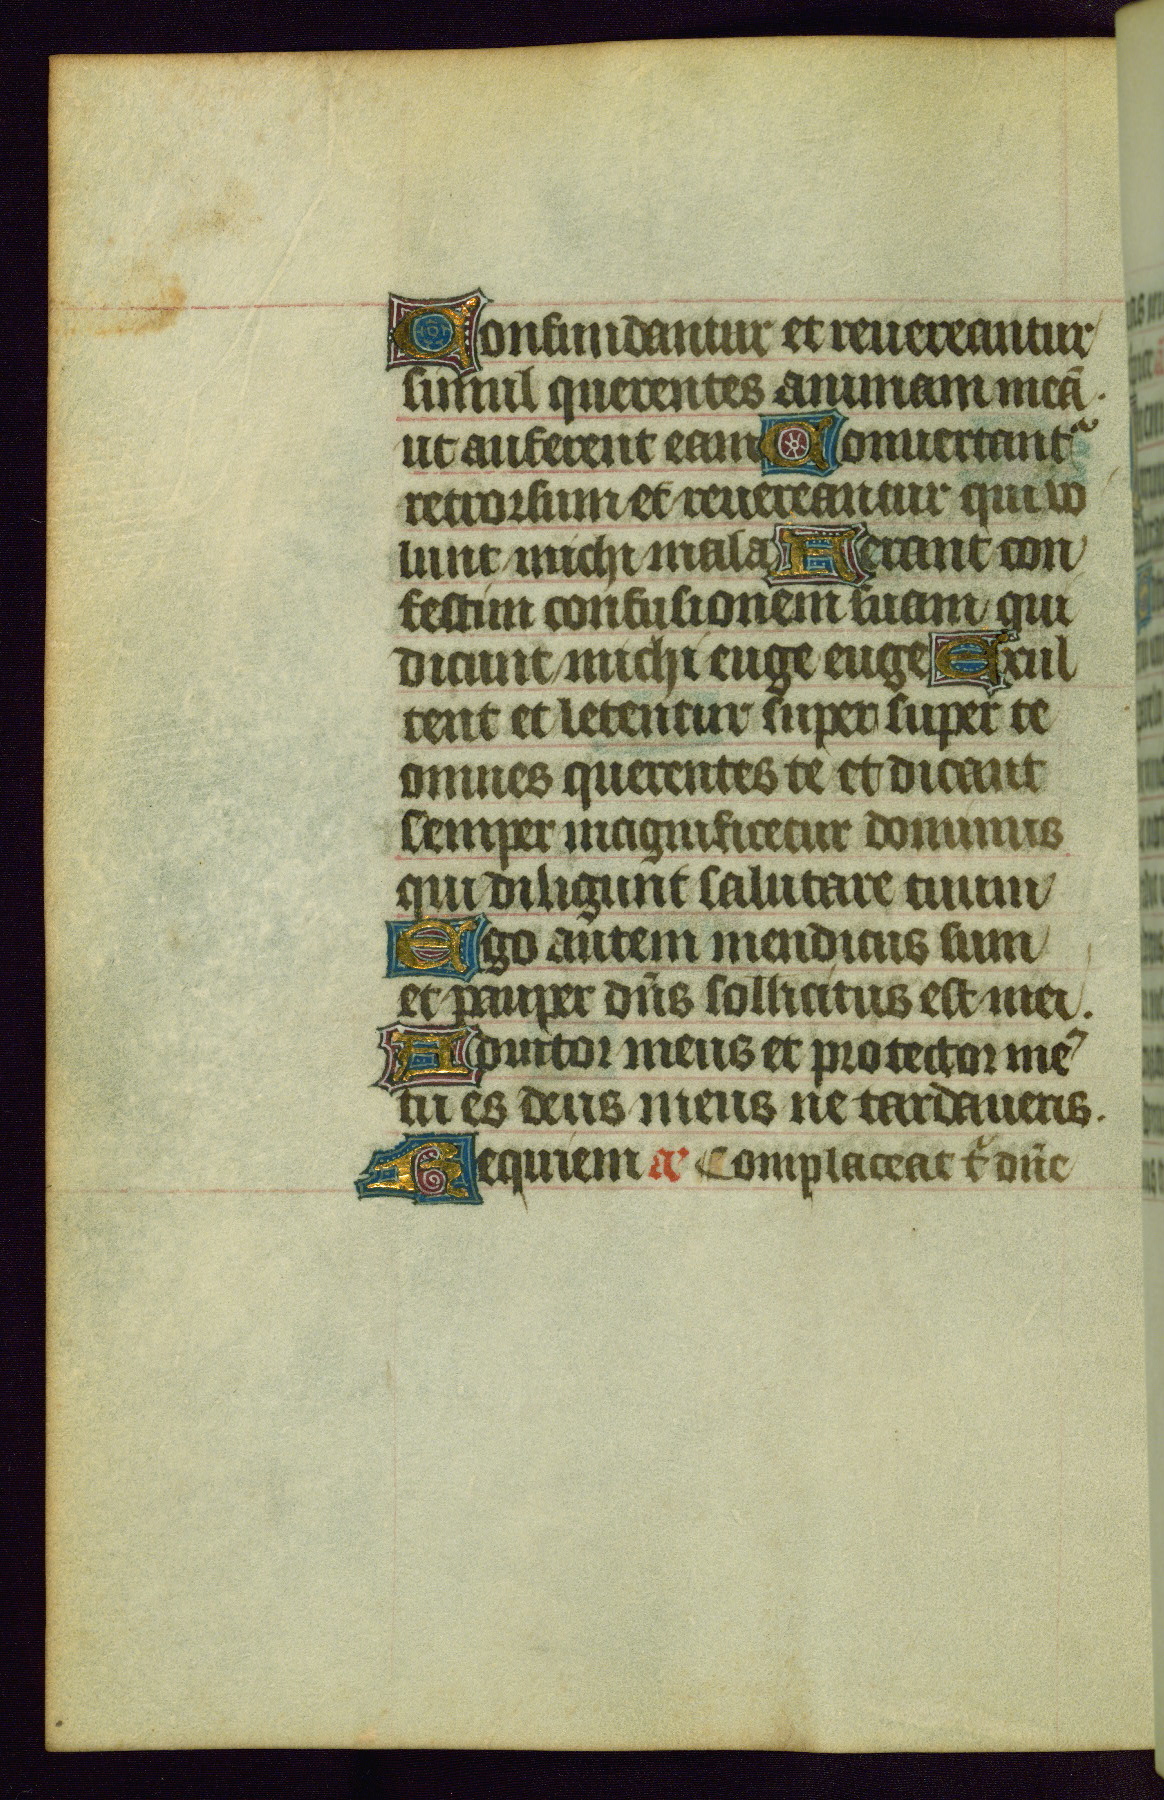 Confundantur et reuereantur
simul querentes animam meā.
ut auferent eam Conuertant᷑
retrorsum et reuereantur qui vo
lunt michi mala Ferant con
festim confusionem suam qui
dicunt michi euge euge Exul
tent et letentur super super te
omnes querentes te et dicant
semper magnificetur dominus
qui diligunt salutare tuum
Ego autem mendicus sum
et pauper dn̄s sollicitus est mei.
Adiutor meus et protector me⁹
tu es deus meus ne tardaueris.
Requiem a᷑ Complaceat t᷑ dn̄e